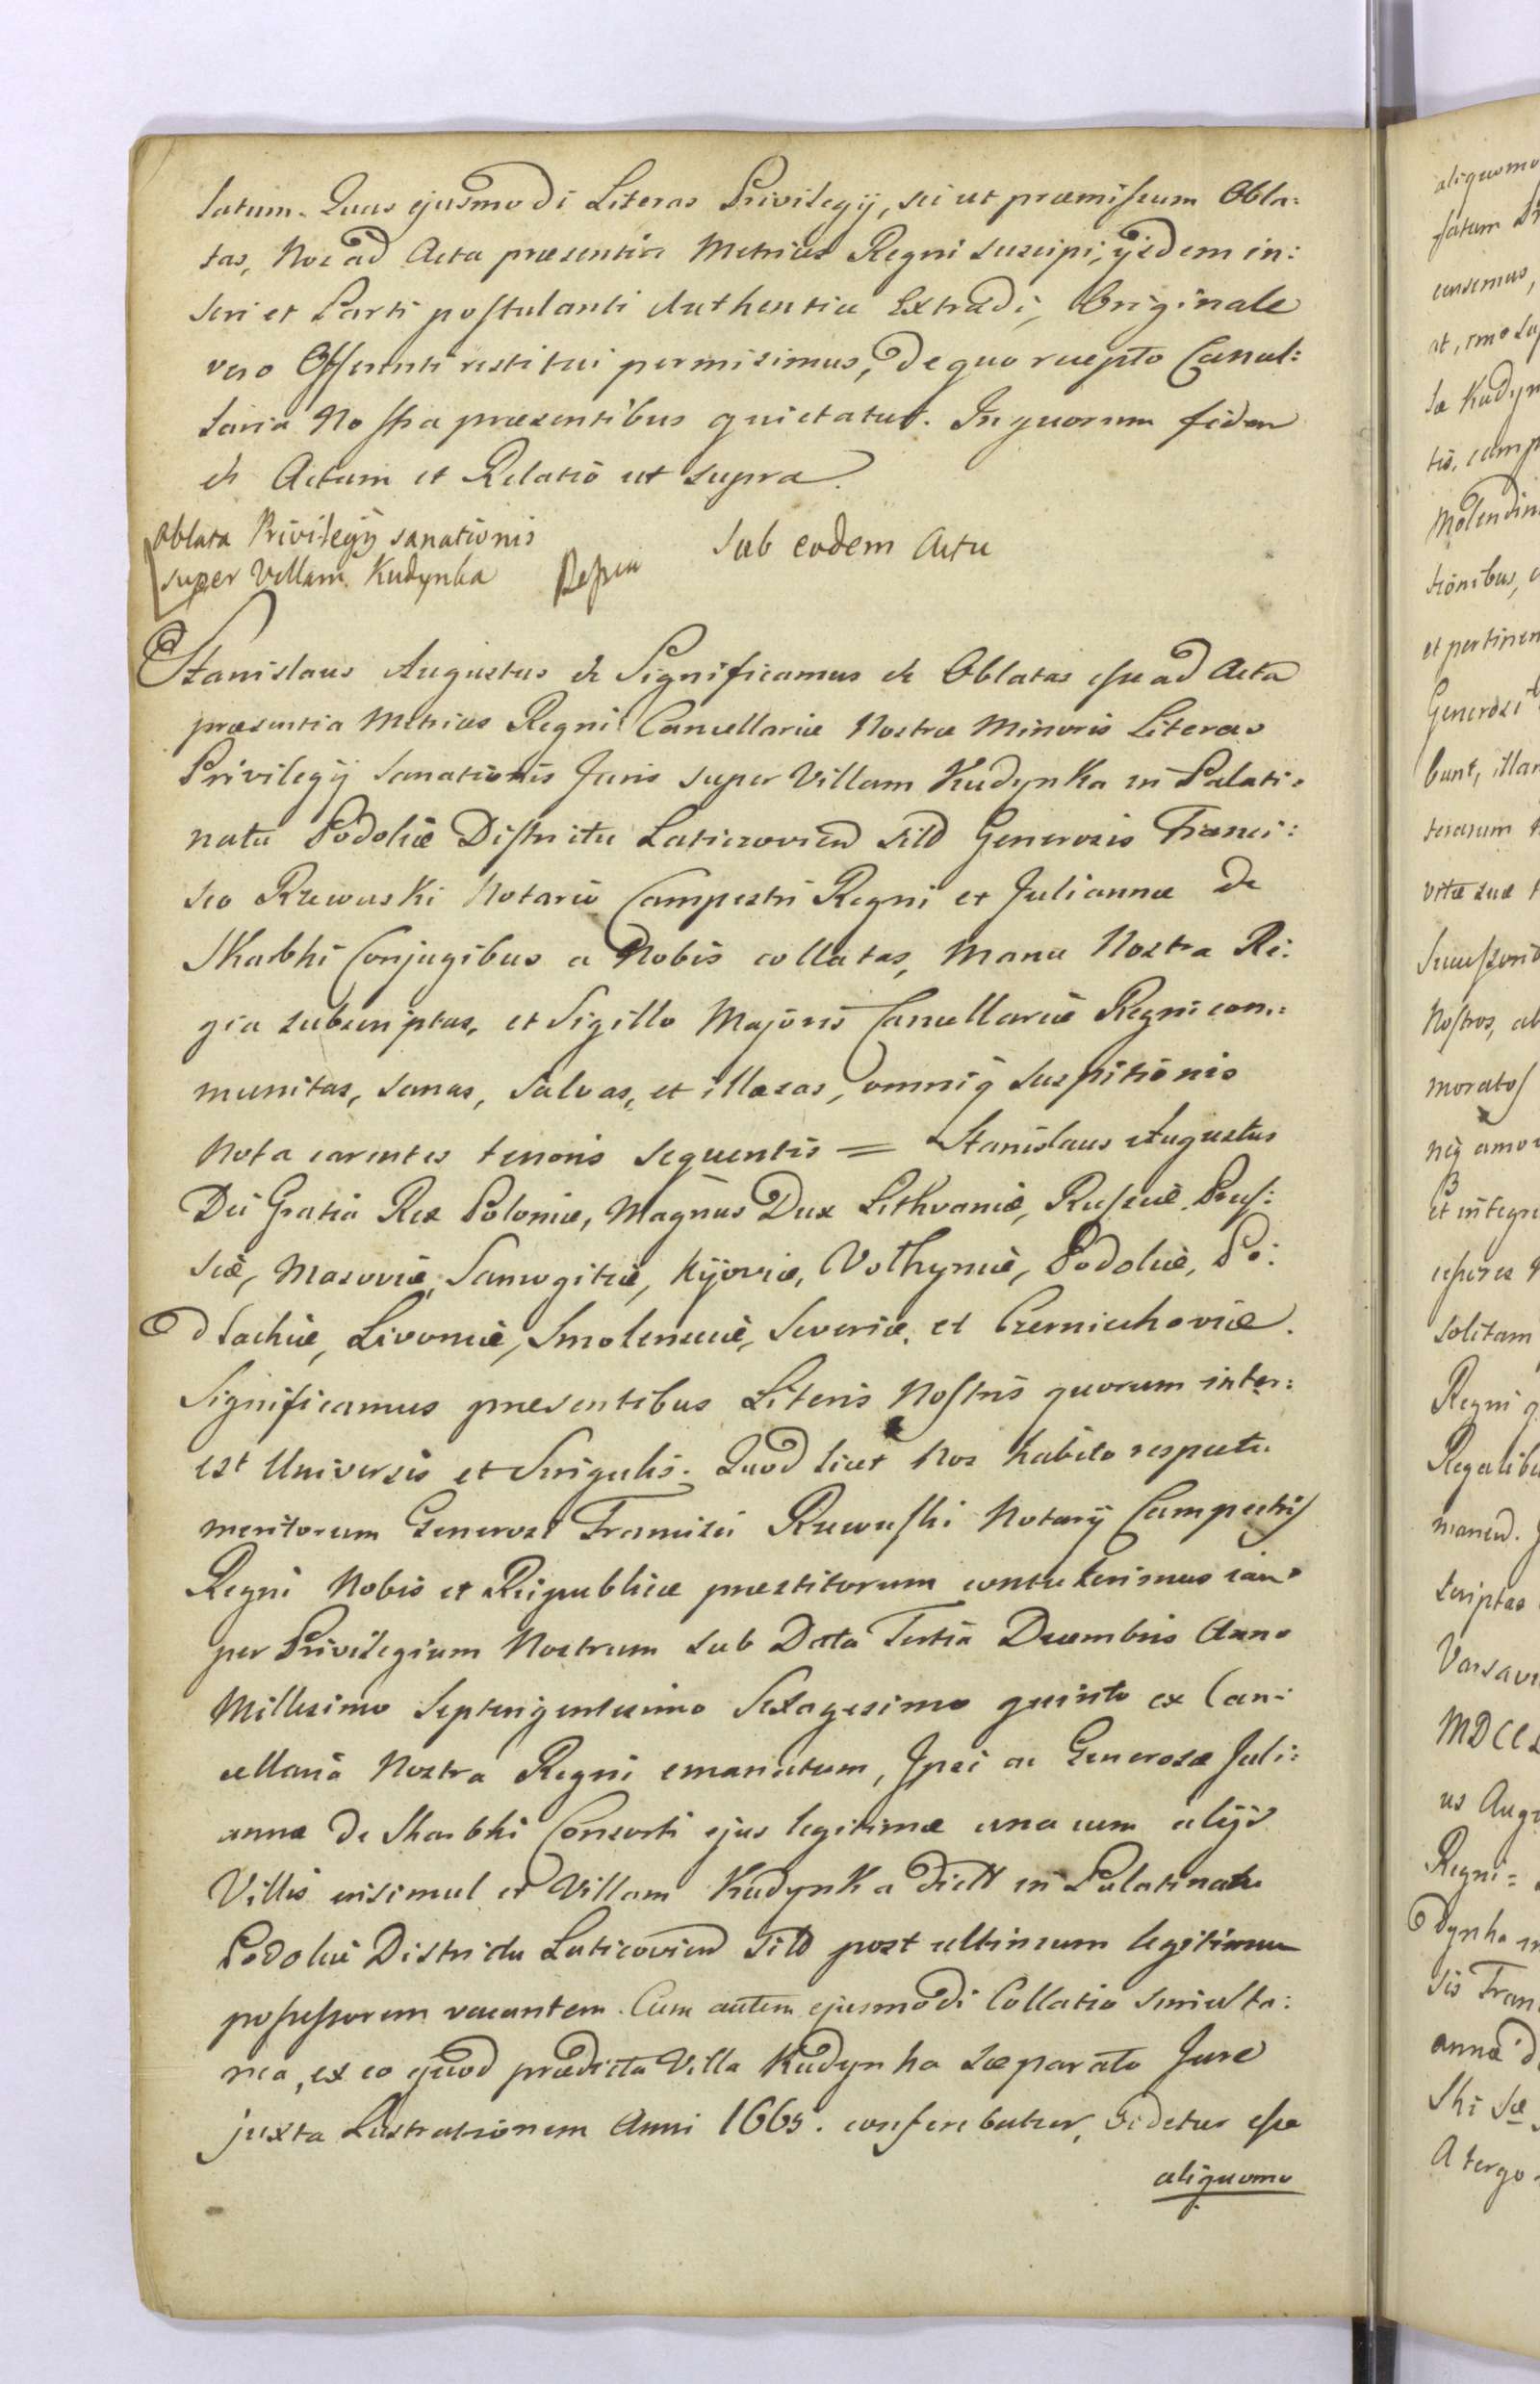 latum. Quas ejusmodi Literas Privilegij, sicut præmissum Obla:
tas, Nos ad Acta præsentia Metrices Regni suscipi, ijsdem in:
seri et Parti postulanti Authentice Extradi, Originale
vero Offerenti restitui permisimus, de quo recepto Cancel:
laria Nostra præsentibus quietatur. In quorum fidem
etc Actum et Relatio ut supra.
Oblata Privilegij sanationis
super Villam Kudynka
Sub eodem Actu
Stanislaus Augustus etc Significamus etc Oblatas esse ad Acta
præsentia Metrices Regni Cancellariæ Nostræ Minoris Literas
Privilegij Sanationis Juris super Villam Kudynka in Palati:
natu Podoliæ Districtu Laticzovien sitd Generosis Franci:
sco Rzewuski Notario Campestri Regni et Juliannæ de
Skarbki Conjugibus a Nobis collatas, Manu Nostra Re:
gia subscriptas, et Sigillo Majoris Cancellariæ Regni com:
munitas, sanas, salvas, et illæsas, omniq suspitionis
nota carentes tenoris sequentis = Stanislaus Augustus
Dei Gratia Rex Poloniæ, Magnus Dux Lithvaniæ, Russiæ, Prus:
siæ, Masoviæ, Samogitiæ, Kijoviæ, Volhyniæ, Podoliæ, Po:
dlachiæ, Livoniæ, Smolensciæ, Severiæ, et Czerniechoviæ.
Significamus præsentibus Literis Nostris quorum inter:
est Universis et Singulis. Quod licet Nos habito respectu
meritorum Generosi Francisci Rzewuski Notarij Campestris
Regni Nobis et Reipublicæ præstitorum contulerimus iam
per Privilegium Nostrum sub Data Tertia Decembris Anno
Millesimo Septingentesimo Sexagesimo quinto ex Can:
cellaria Nostra Regni emanatum, Ipsi ac Generosæ Juli:
annæ de Skarbki Consorti ejus legitimæ una cum alijs
Villis insimul et Villam Kudynka dictt in Palatinatu
Podoliæ Districtu Laticovien sitd post ultimum legitimum
possessorem vacantem. Cum autem ejusmodi Collatio simulta:
nea, ex eo quod prædicta Villa Kudynka sæparato Jure
juxta Lustrationem Anni 1665. conferebatur, videtur esse
aliquomo
aliquomo
satum
censemus,
at,
Kudyn
Molendin
tionibus,
et pertinen
Generosi
bunt, illar
vitæ suæ
Nostros, ab
et integr
solitam
Regni
Regalibu
scriptas
Varsavi
MDCC
us Aug
Regni =
dynka in
sis Fran
annæ d
A tergo